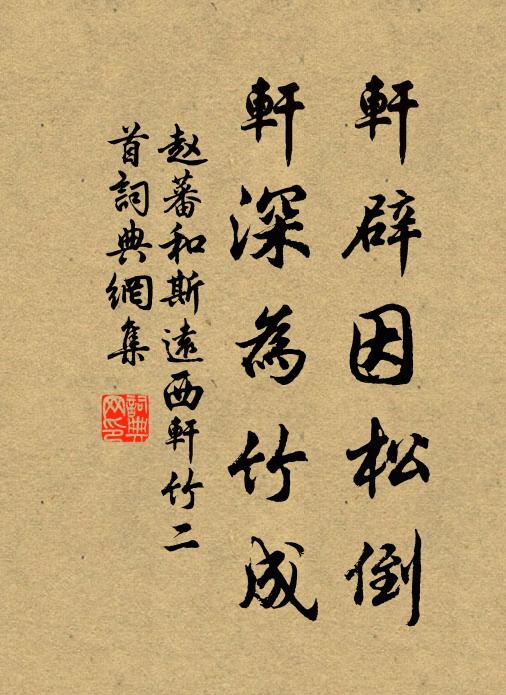 軒辟因松倒
軒深為竹成
赵蕃和斯遠西軒竹二
首詞典網集
詞典
网印